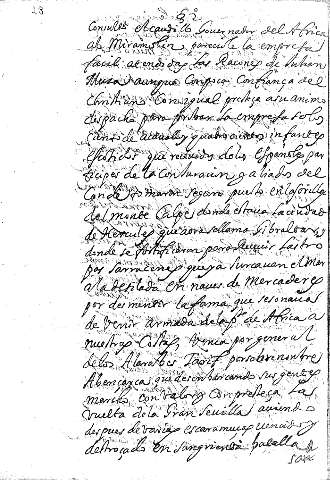 28
Consulta el caudillo Governador del Africa
al Miramolin pareciole la empresa
facil atendidas las Raçones de Julian
Muza aunque con poca Confiança del
Christiano Con igual presteça a su animo
despacha para provar la empresa solos
cientos de acavallo y quatrocientos infantes
Escogidos que recividos de los Españoles par
ticipes de la Conjuracion guiados del
Conde tomaron seguro puesto en las orillas
del monte Calpe donde estava la ciudad
de Hercules que aora se llama Gibraltar
donde se fortificaron para recivir las tro
pas Sarracenas que ya surcavan el Mar
a la desilada en naves de Mercaderes
por desmentir la fama que se sonava
de venir armada de la de Africa a
nuestras Costas Venia por general
de los Alarabes Tarif por sobrenombre
Abençarca que desembarcando sus gentes
marcho con valor y con presteça la
vuelta de la Gran Sevilla aviendo
despues de varias escaramuças vencido y
destroçado en sangrienta batalla a